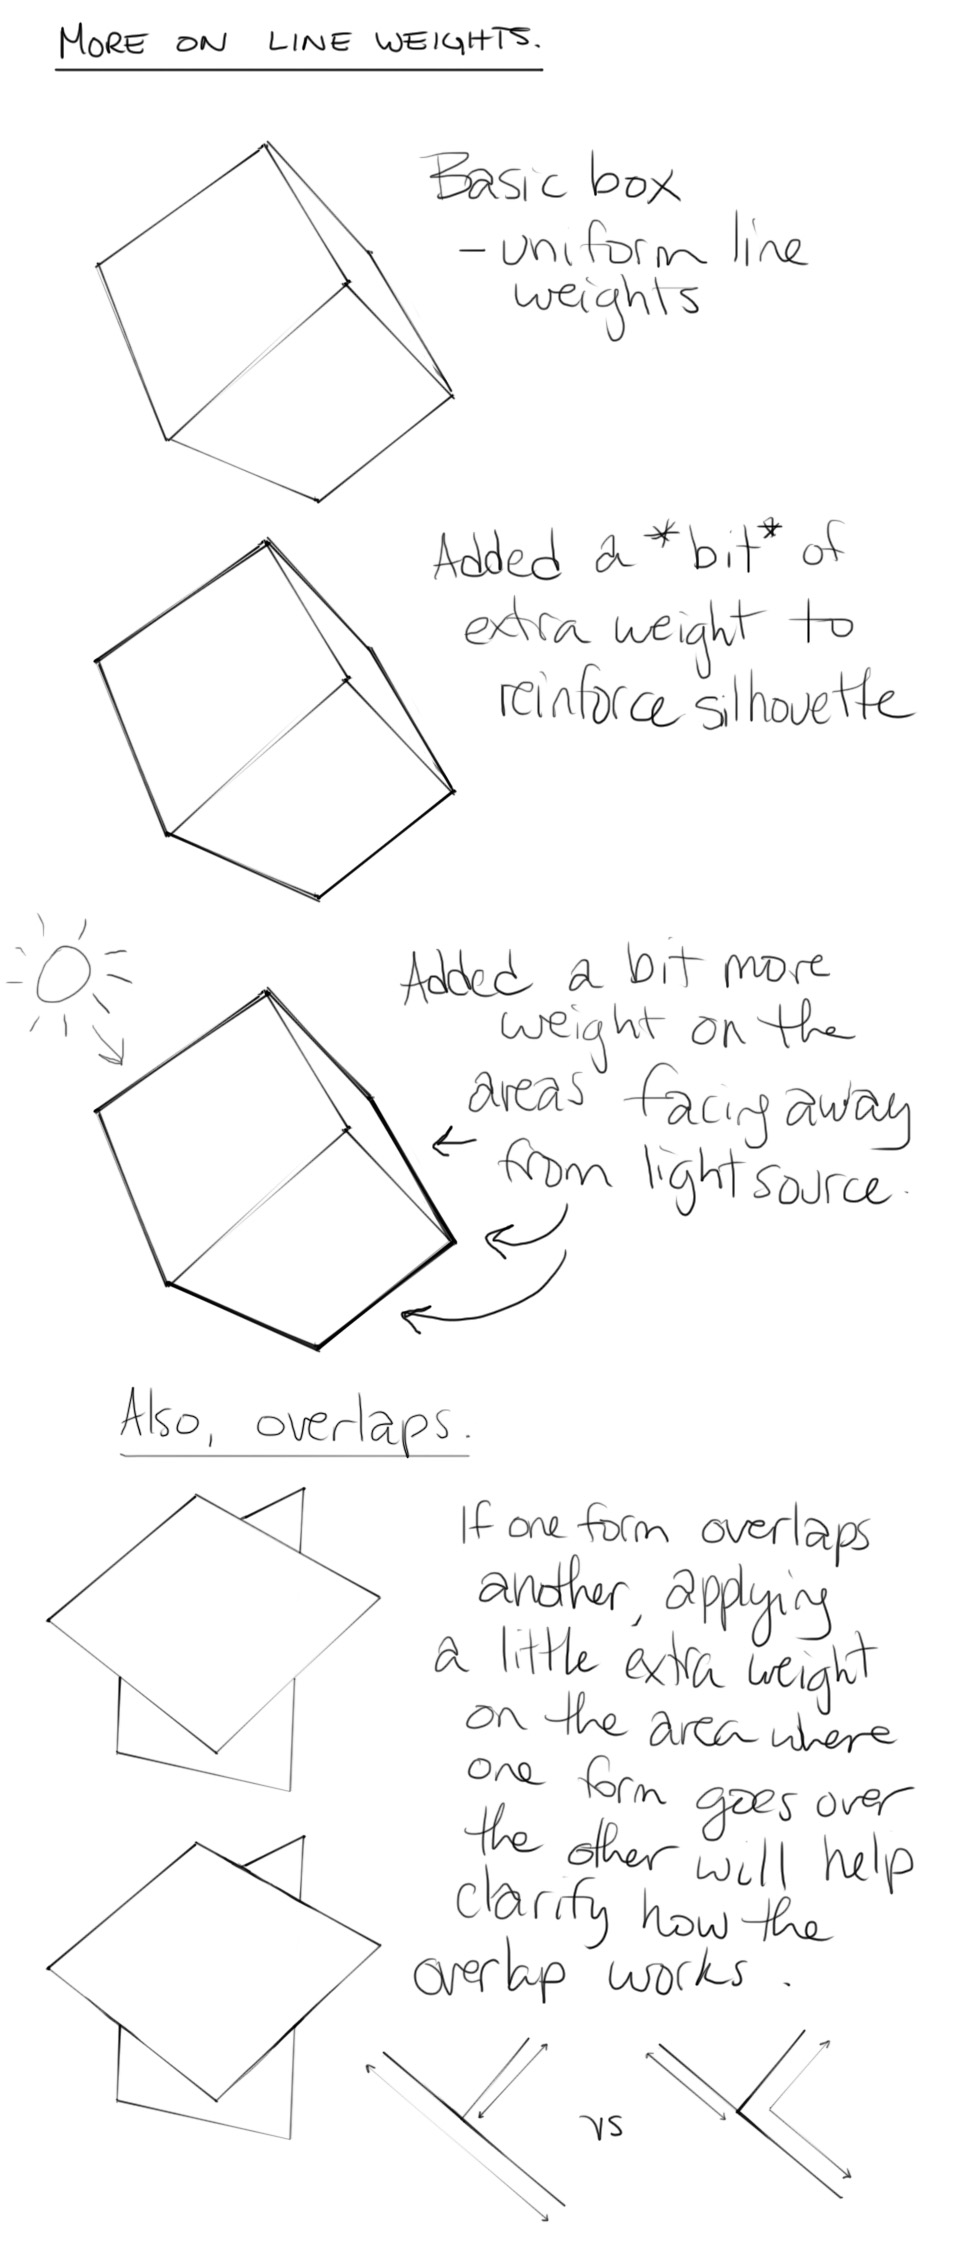 MORE ON LINE WEIGHTS.
Basic box
- uniform line
weights
Added a *bit* of
extra weight to
reinforce silhouette
Added a bit more
weight on the
areas facing away
from light source.
Also, overlaps.
If one form overlaps
another, applying
a little extra weight
on the area where
one form goes over
the other will help
clarify how the
overlap works.
vs